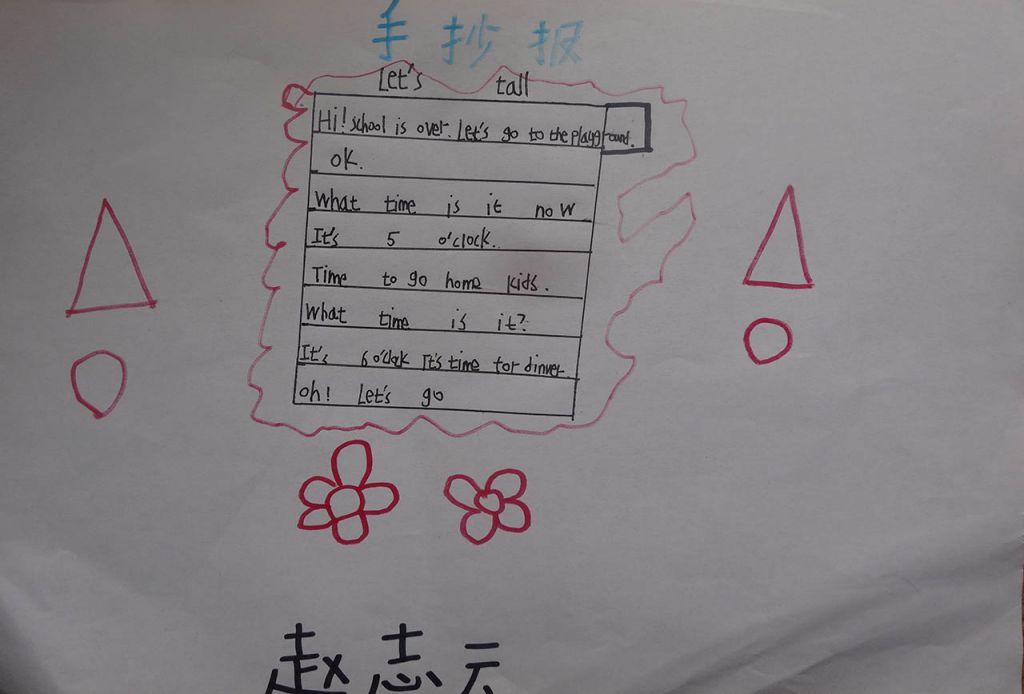 手抄报
Let's tall
Hi! school is over Let's go to the playground.
ok.
What time is it now
It's 5 o'clock.
Time to go home kids.
What time is it?
It's 6 o'clok It's time for dinner
oh! Let's go
赵志云